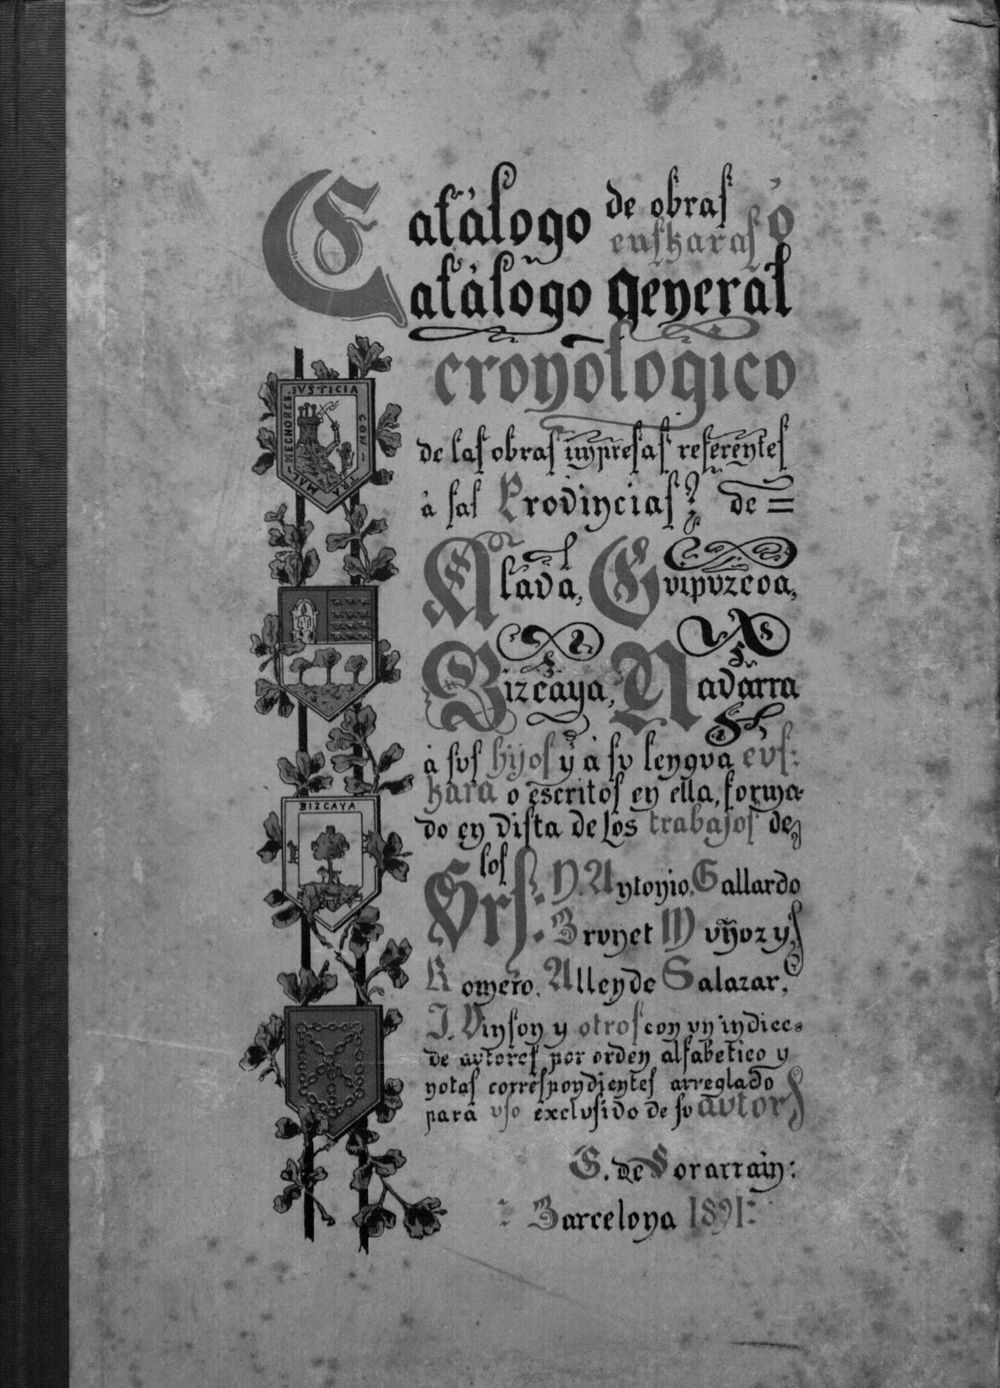 Catálogo de obras
euskaras ó
Catálogo general
cronológico
de las obras impresas referentes
á las Provincias de =
Alava, Guipuzcoa,
Bizcaya, Navarra
á sus hijos y á su lengua eus-
kara o escritos en ella, forma-
do en vista de los trabajos de
los
Srs. D. Antonio, Gallardo
Brunet Muñoz y
Romero, Allende Salazar,
J. Vinson y otros con un indice
de autores por orden alfabetico y
notas correspondientes arreglado
para uso exclusivo de su autor
G. de Sorarrain:
Barcelona 1891:
JUSTICIA
CON-
TRA
MAL-
HECHORES
BIZCAYA